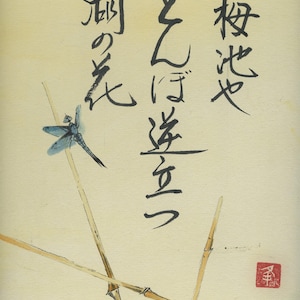 栂池や
とんぼ逆立つ
湖の花